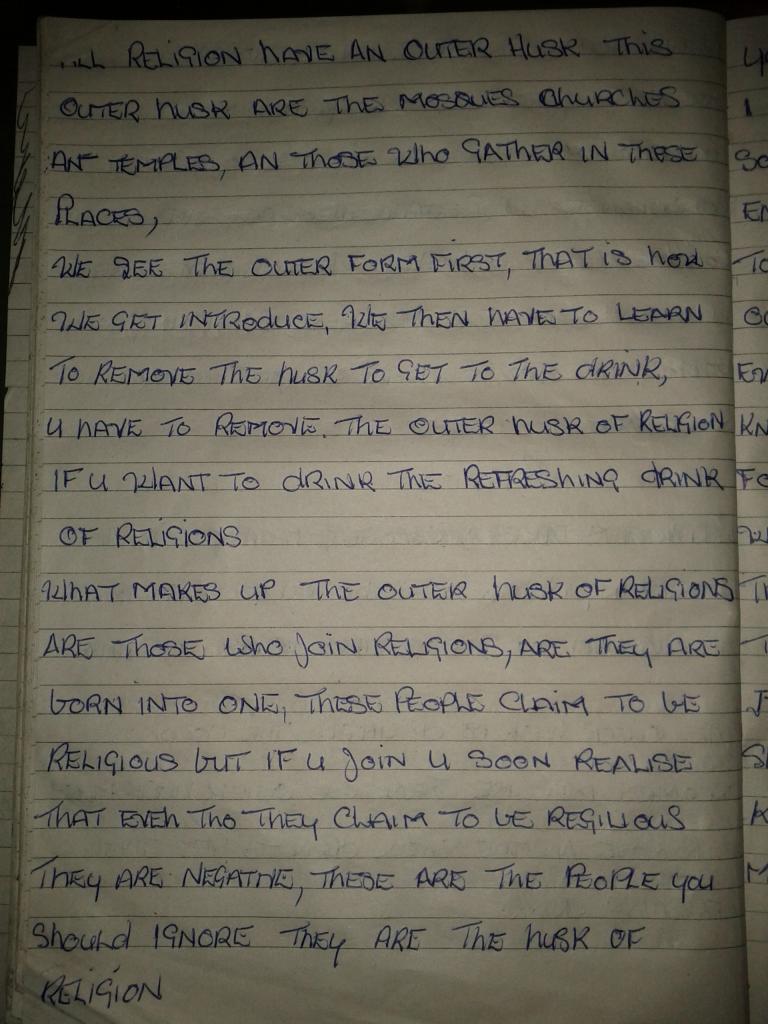 RELIGION HAVE AN OUTER HUSK THIS
OUTER HUSK ARE THE MOSQUES CHURCHES
AN TEMPLES, AN THOSE WHO GATHER IN THESE
PLACES,
WE SEE THE OUTER FORM FIRST, THAT IS HOW
WE GET INTRODUCE, WE THEN HAVE TO LEARN
TO REMOVE THE HUSK TO GET TO THE DRINK,
U HAVE TO REMOVE. THE OUTER HUSK OF RELIGION
IF U WANT TO DRINK THE REFRESHING DRINK
OF RELIGIONS
WHAT MAKES UP THE OUTER HUSK OF RELIGIONS
ARE THOSE WHO JOIN RELIGIONS, ARE THEY ARE
BORN INTO ONE, THESE PEOPLE CLAIM TO BE
RELIGIOUS BUT IF U JOIN U SOON REALISE
THAT EVEN THO THEY CLAIM TO BE REGILIOUS
THEY ARE NEGATIVE, THESE ARE THE PEOPLE YOU
SHOULD IGNORE THEY ARE THE HUSK OF
RELIGION